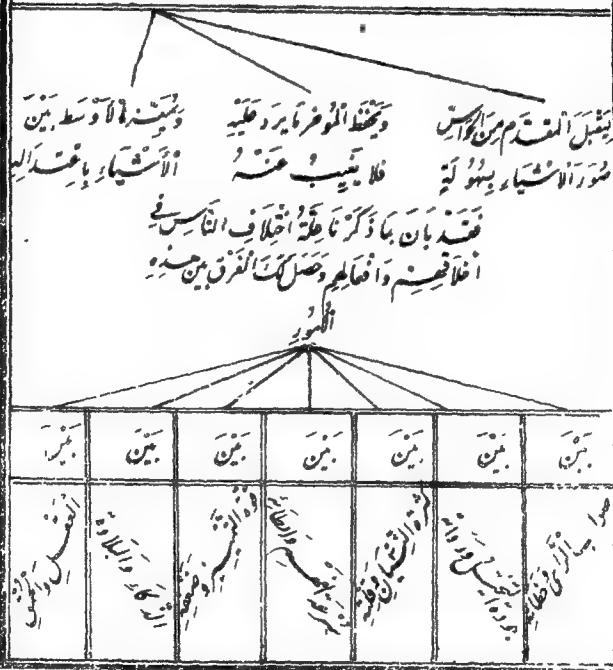 ليقبل المقدم من الحواس
صور الاشياء بسهولة
ويحفظ المؤخر ما يرد عليه
فلا يغيب عنه
الأوسط بين
الأشياء
فقد بان بما ذكرنا علة اختلاف الناس في
اخلاقهم وافعالهم وحصل لك الفرق بين هذه
الأمور
بين
بين
بين
بين
بين
بين
بين
صواب الرأي وخطائه
جودة التخيل ورداءته
كثرة النسيان وقلته
الفهم
قوة التمييز وضعفه
الذكاء والبلادة
العقل